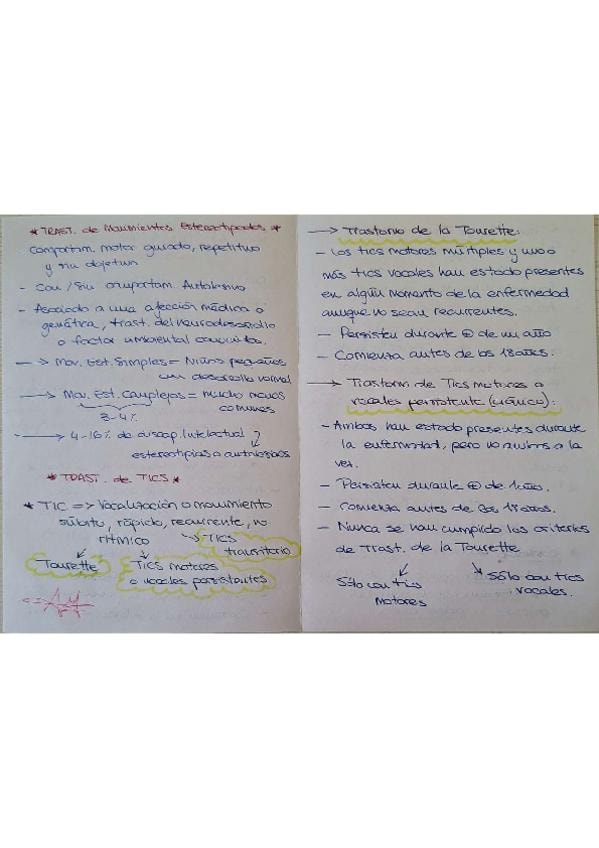 * TRAST. de Movimientos Estereotipados *
Comportam. motor guiado, repetitivo
y sin objetivo
- Con/Sin comportam. Autolesivo
- Asociado a una afección médica o
genética, trast. del neurodesarrollo
o factor ambiental conocidos.
- → Mov. Est. Simples = Niños pequeños
con desarrollo normal
→ Mov. Est. Complejos = mucho menos
comunes
3-4%
- → 4-16% de discap. Intelectual
estereotipias o autolesivos
* TRAST. de TICS *
* TIC => Vocalización o movimiento
súbito, rápido, recurrente, no
rítmico
TICS
transitorio
Tourette
TICS motores
o vocales persistentes
→ Trastorno de la Tourette:
- Los tics motores múltiples y uno o
más tics vocales han estado presentes
en algún momento de la enfermedad
aunque no sean recurrentes.
- Persisten durante ⊕ de un año
- Comienza antes de los 18 años.
→ Trastorn de Tics Motores o
vocales persistente (crónico):
- Ambos han estado presentes durante
la enfermedad, pero no ambos a la
vez.
- Persisten durante ⊕ de 1 año.
- Comienza antes de los 18 años.
- Nunca se han cumplido los criterios
de Trast. de la Tourette
Sólo con tics
motores
Sólo con tics
vocales.